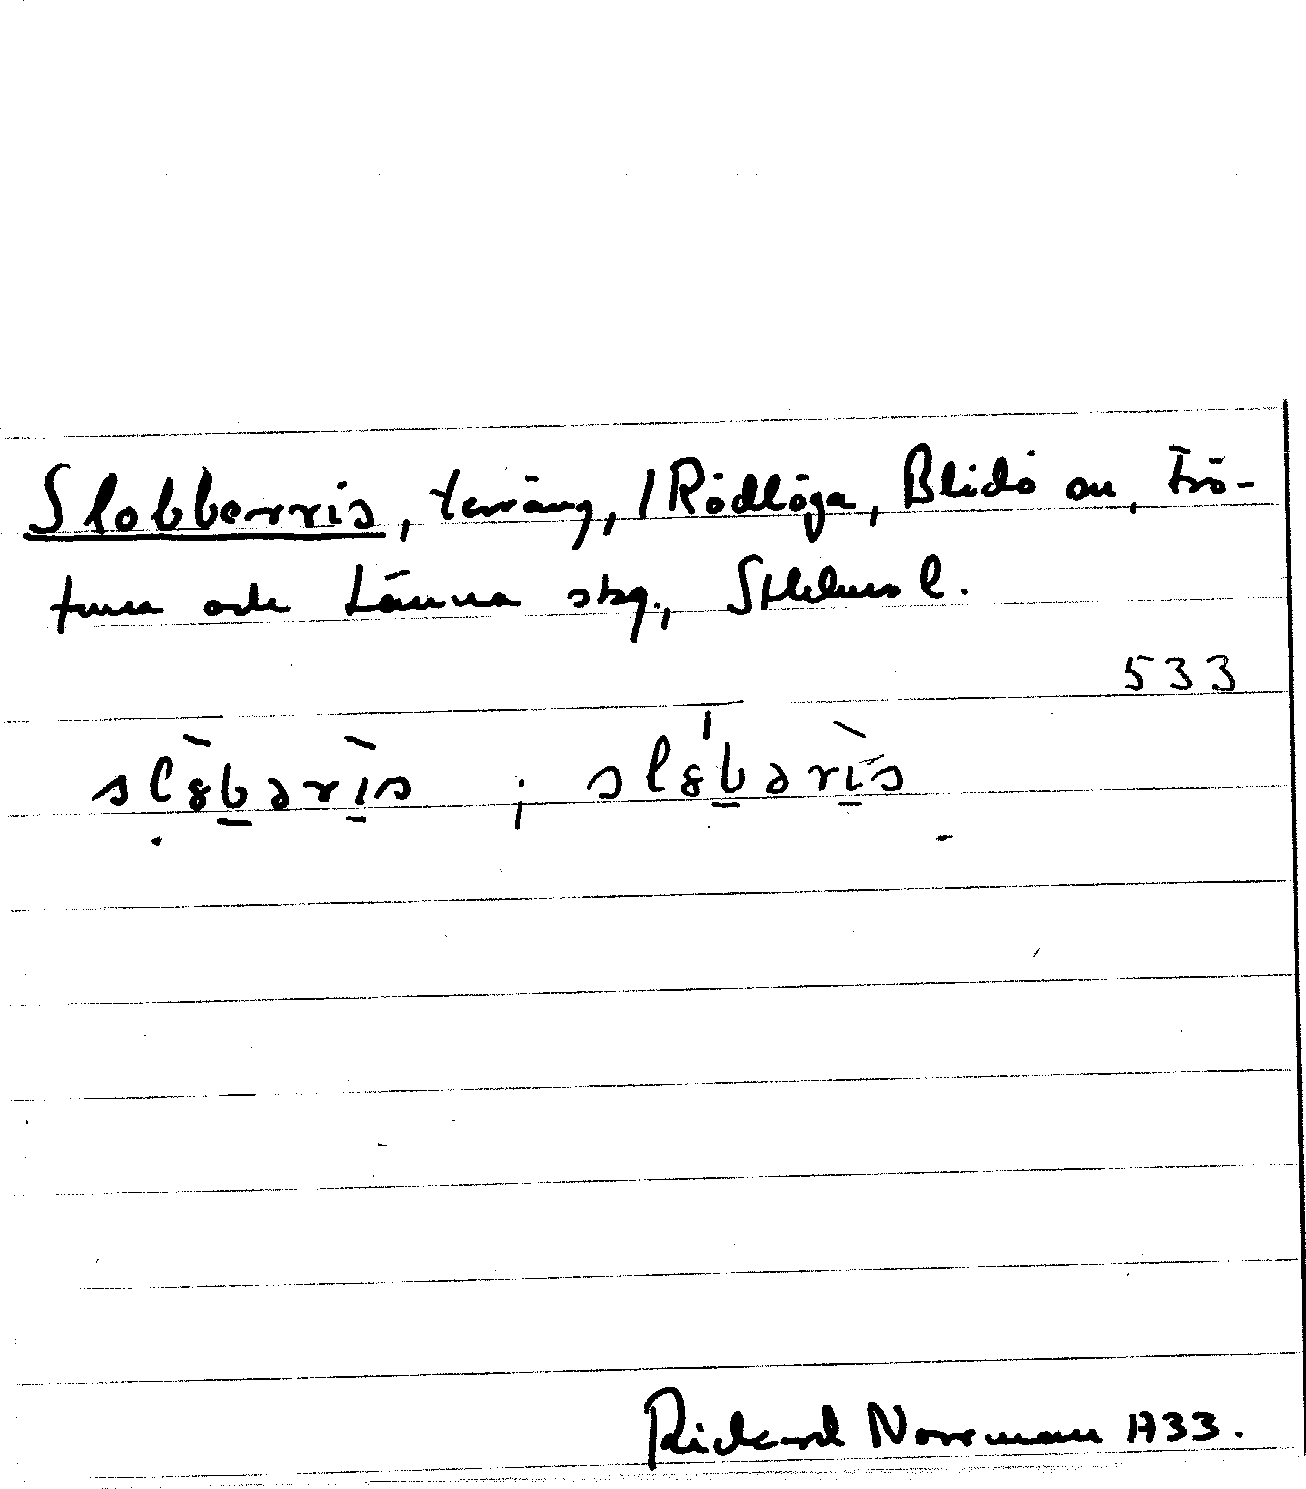 Slobberris, terräng, / Rödlöga, Blidö sn, Frö-
tuna och Länna skg., Sthlms l.
533
slȣ̀bərìs ; slȣ́bərìs
Rickard Norrman 1933.